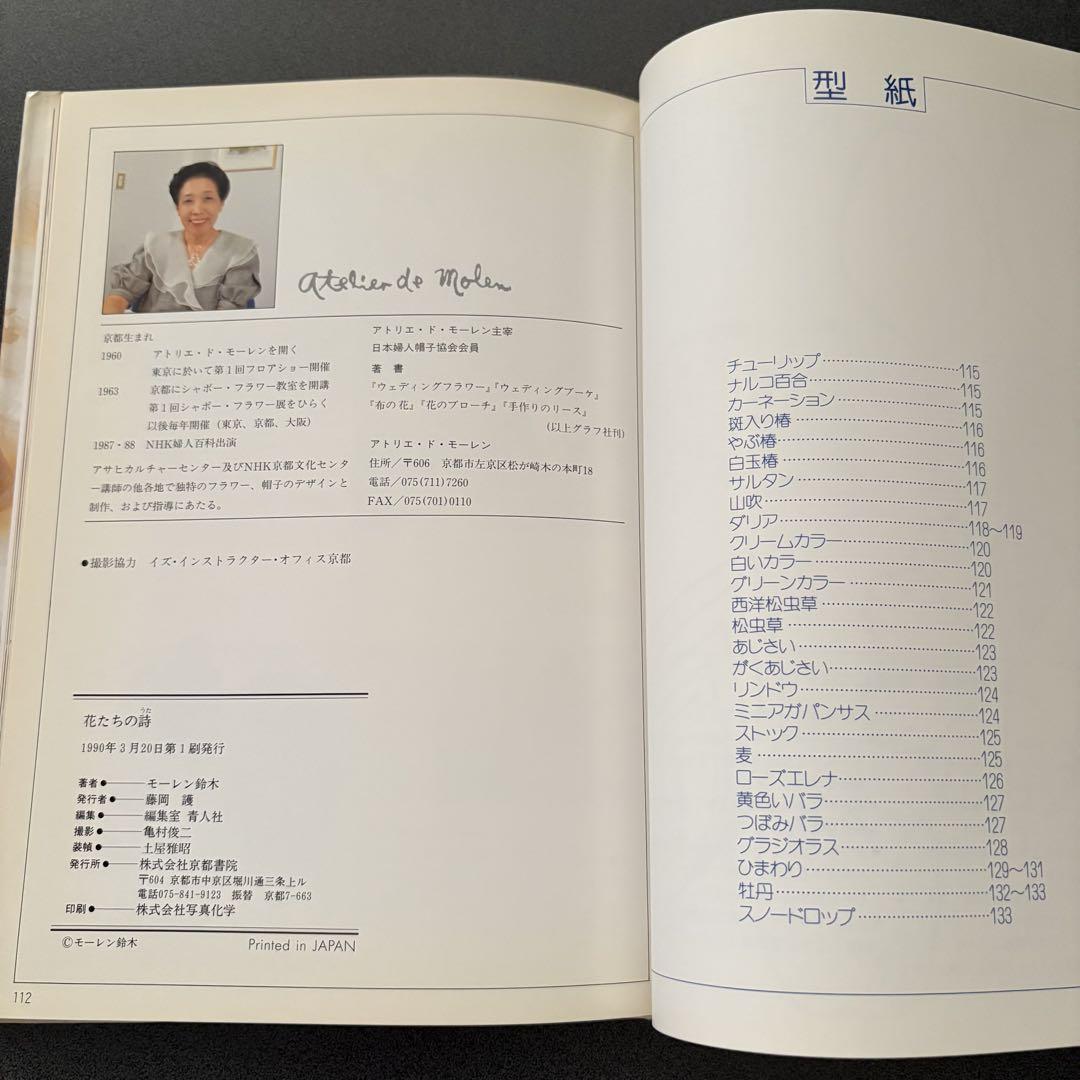 Atelier de Molen
京都生まれ
1960 アトリエ・ド・モーレンを開く
東京に於いて第1回フロアショー開催
1963 京都にシャポー・フラワー教室を開講
第1回シャポー・フラワー展をひらく
以後毎年開催(東京、京都、大阪)
1987・88 NHK婦人百科出演
アサヒカルチャーセンター及びNHK京都文化センタ
ー講師の他各地で独特のフラワー、帽子のデザインと
制作、および指導にあたる。
アトリエ・ド・モーレン主宰
日本婦人帽子協会会員
著 書
『ウェディングフラワー』『ウェディングブーケ』
『布の花』『花のブローチ』『手作りのリース』
(以上グラフ社刊)
アトリエ・ド・モーレン
住所/〒606 京都市左京区松が崎木の本町18
電話/075(711)7260
FAX/075(701)0110
●撮影協力 イズ・インストラクター・オフィス京都
うた
花たちの詩
1990年3月20日第1刷発行
著者●――モーレン鈴木
発行者●――藤岡 護
編集●――編集室 青人社
撮影●――亀村俊二
装幀●――土屋雅昭
発行所●――株式会社京都書院
〒604 京都市中京区堀川通三条上ル
電話075-841-9123 振替 京都7-663
印刷●――株式会社写真化学
©モーレン鈴木 Printed in JAPAN
112
型 紙
チューリップ……115
ナルコ百合……115
カーネーション……115
斑入り椿……116
やぶ椿……116
白玉椿……116
サルタン……117
山吹……117
ダリア……118〜119
クリームカラー……120
白いカラー……120
グリーンカラー……121
西洋松虫草……122
松虫草……122
あじさい……123
がくあじさい……123
リンドウ……124
ミニアガパンサス……124
ストック……125
麦……125
ローズエレナ……126
黄色いバラ……127
つぼみバラ……127
グラジオラス……128
ひまわり……129〜131
牡丹……132〜133
スノードロップ……133